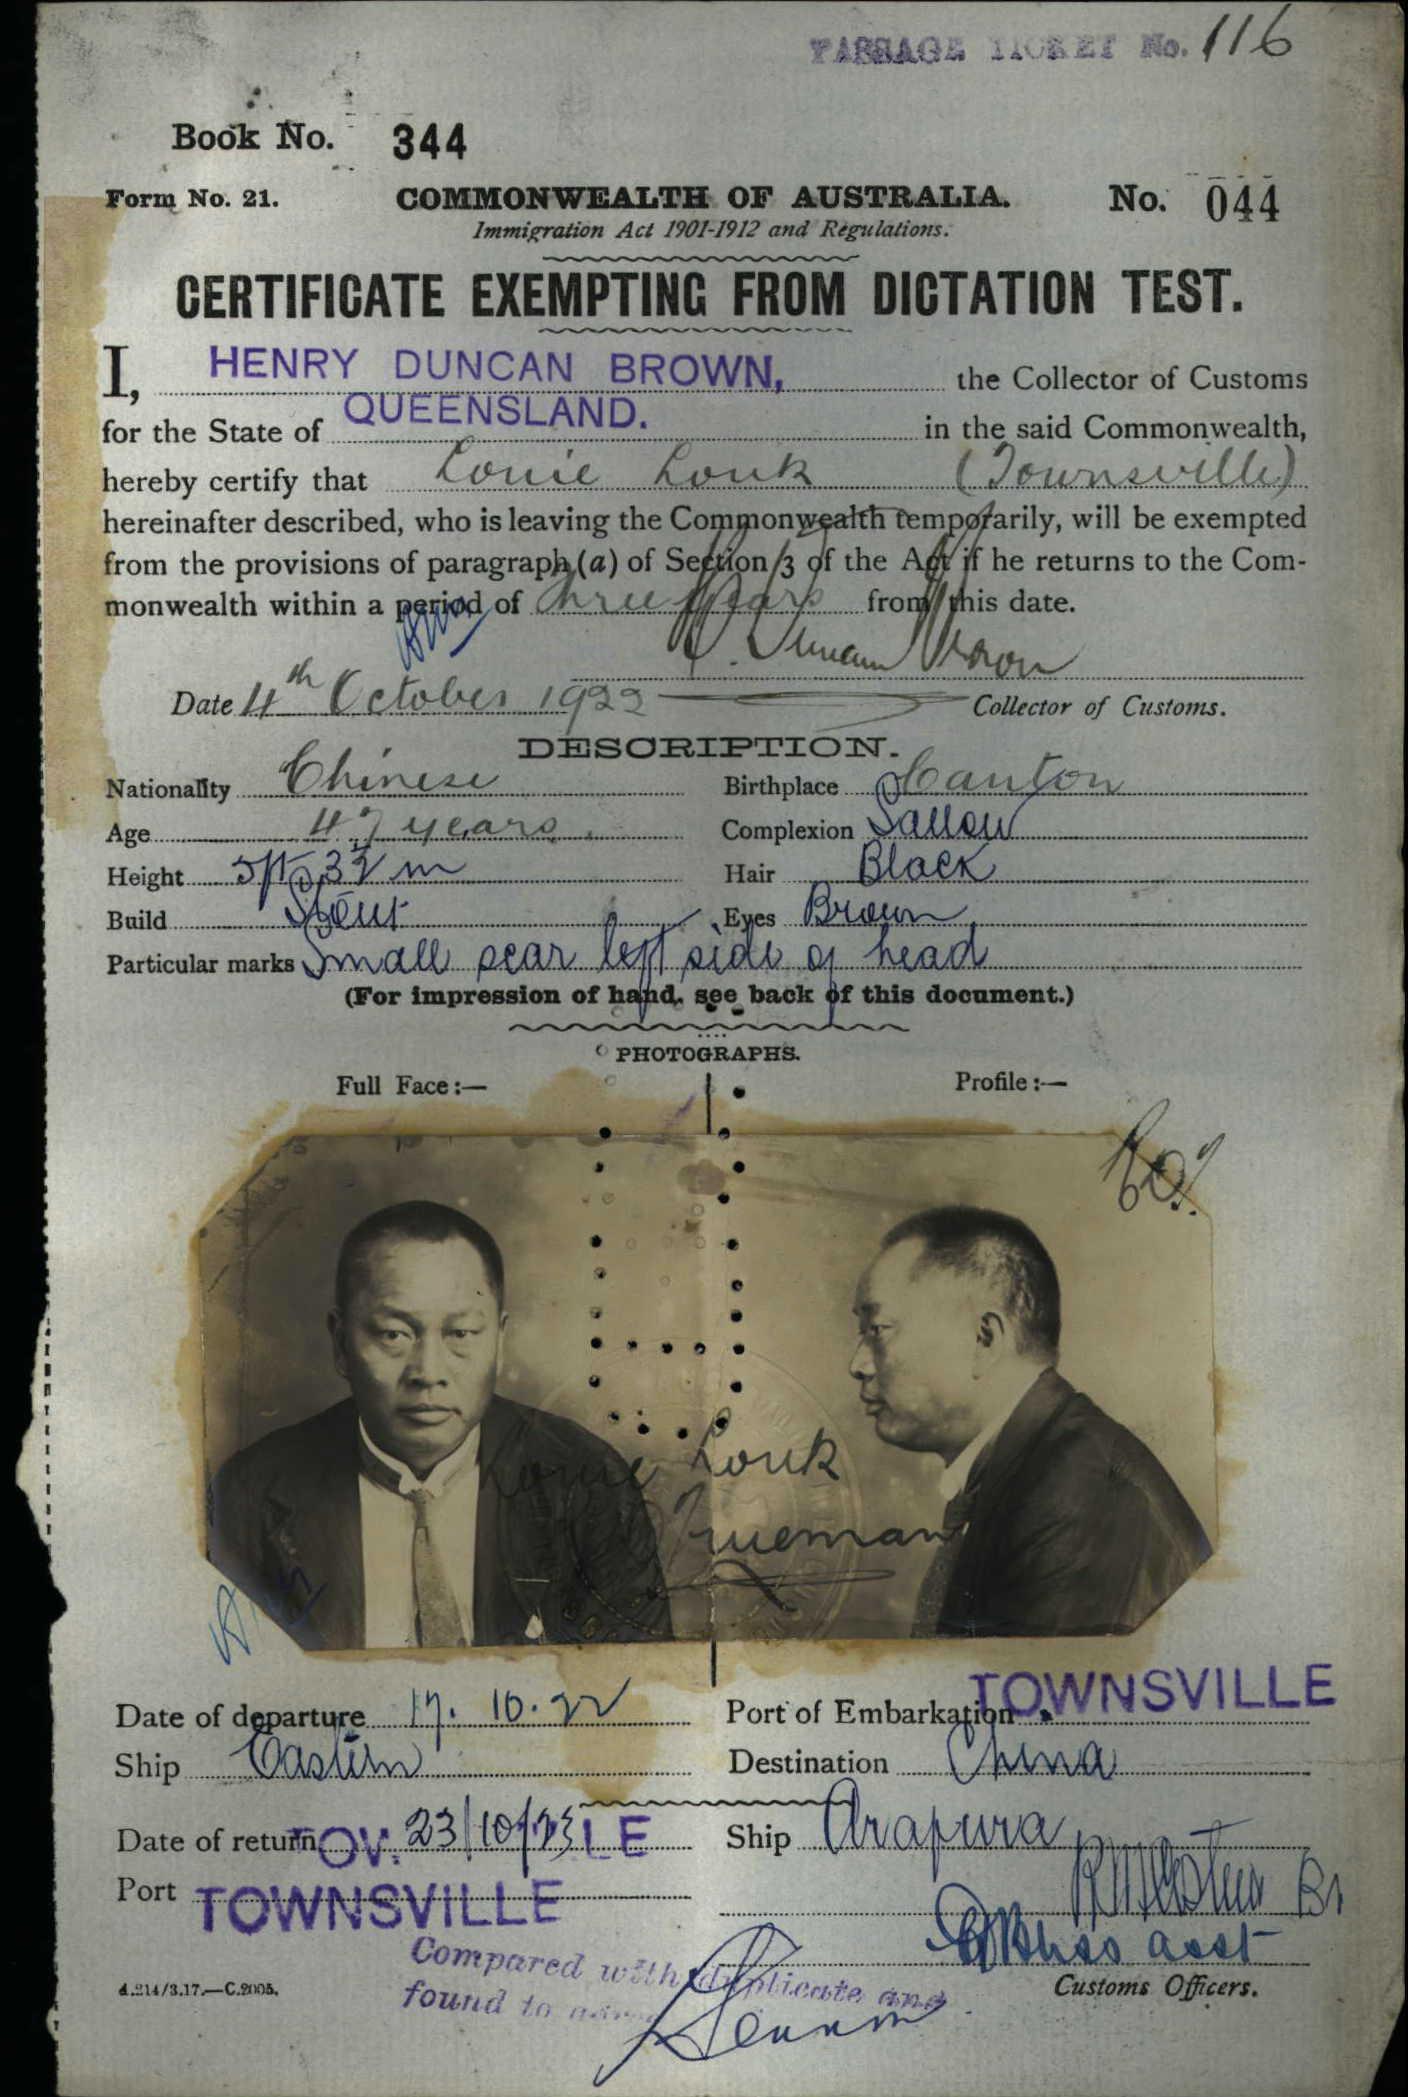 PASSAGE TICKET No. 116
Book No. 344
Form No. 21. COMMONWEALTH OF AUSTRALIA. No. 044
Immigration Act 1901-1912 and Regulations.
CERTIFICATE EXEMPTING FROM DICTATION TEST.
I, HENRY DUNCAN BROWN, the Collector of Customs
for the State of QUEENSLAND. in the said Commonwealth,
hereby certify that Louie Louk (Townsville)
hereinafter described, who is leaving the Commonwealth temporarily, will be exempted
from the provisions of paragraph (a) of Section 3 of the Act if he returns to the Com-
monwealth within a period of three years from this date.
H. Duncan Brown
Date 4th October 1922 Collector of Customs.
DESCRIPTION.
Nationality Chinese Birthplace Canton
Age 47 years. Complexion Sallow
Height 5ft Hair Black
Build Stout Eyes Brown
Particular marks Small scar left side of head
(For impression of hand, see back of this document.)
PHOTOGRAPHS.
Full Face:— Profile:—
Louie Louk
Trueman
Date of departure 17.10.22 Port of Embarkation TOWNSVILLE
Ship Eastern Destination China
Date of return 23/10/23 Ship Arafura
Port TOWNSVILLE
asst
Compared with duplicate and
found to
A.214/3.17.—C.2005. Customs Officers.